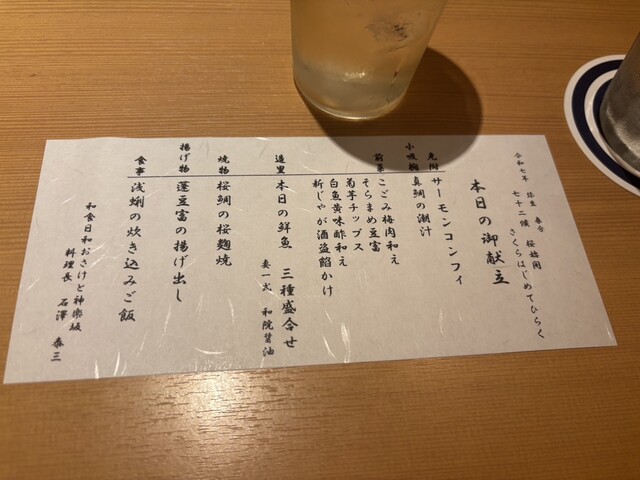 令和七年 弥生 春分
七十二候 桜始開
さくらはじめてひらく
本日の御献立
先附 サーモンコンフィ
小吸椀 真鯛の潮汁
前菜 こごみ梅肉和え
そらまめ豆富
菊芋チップス
白魚黄味酢和え
新じゃが酒盗餡かけ
造里 本日の鮮魚 三種盛合せ
妻一式 和院醤油
焼物 桜鯛の桜麹焼
揚げ物 蓬豆富の揚げ出し
食事 浅蜊の炊き込みご飯
和食日和おさけと神楽坂
料理長 石澤 泰三